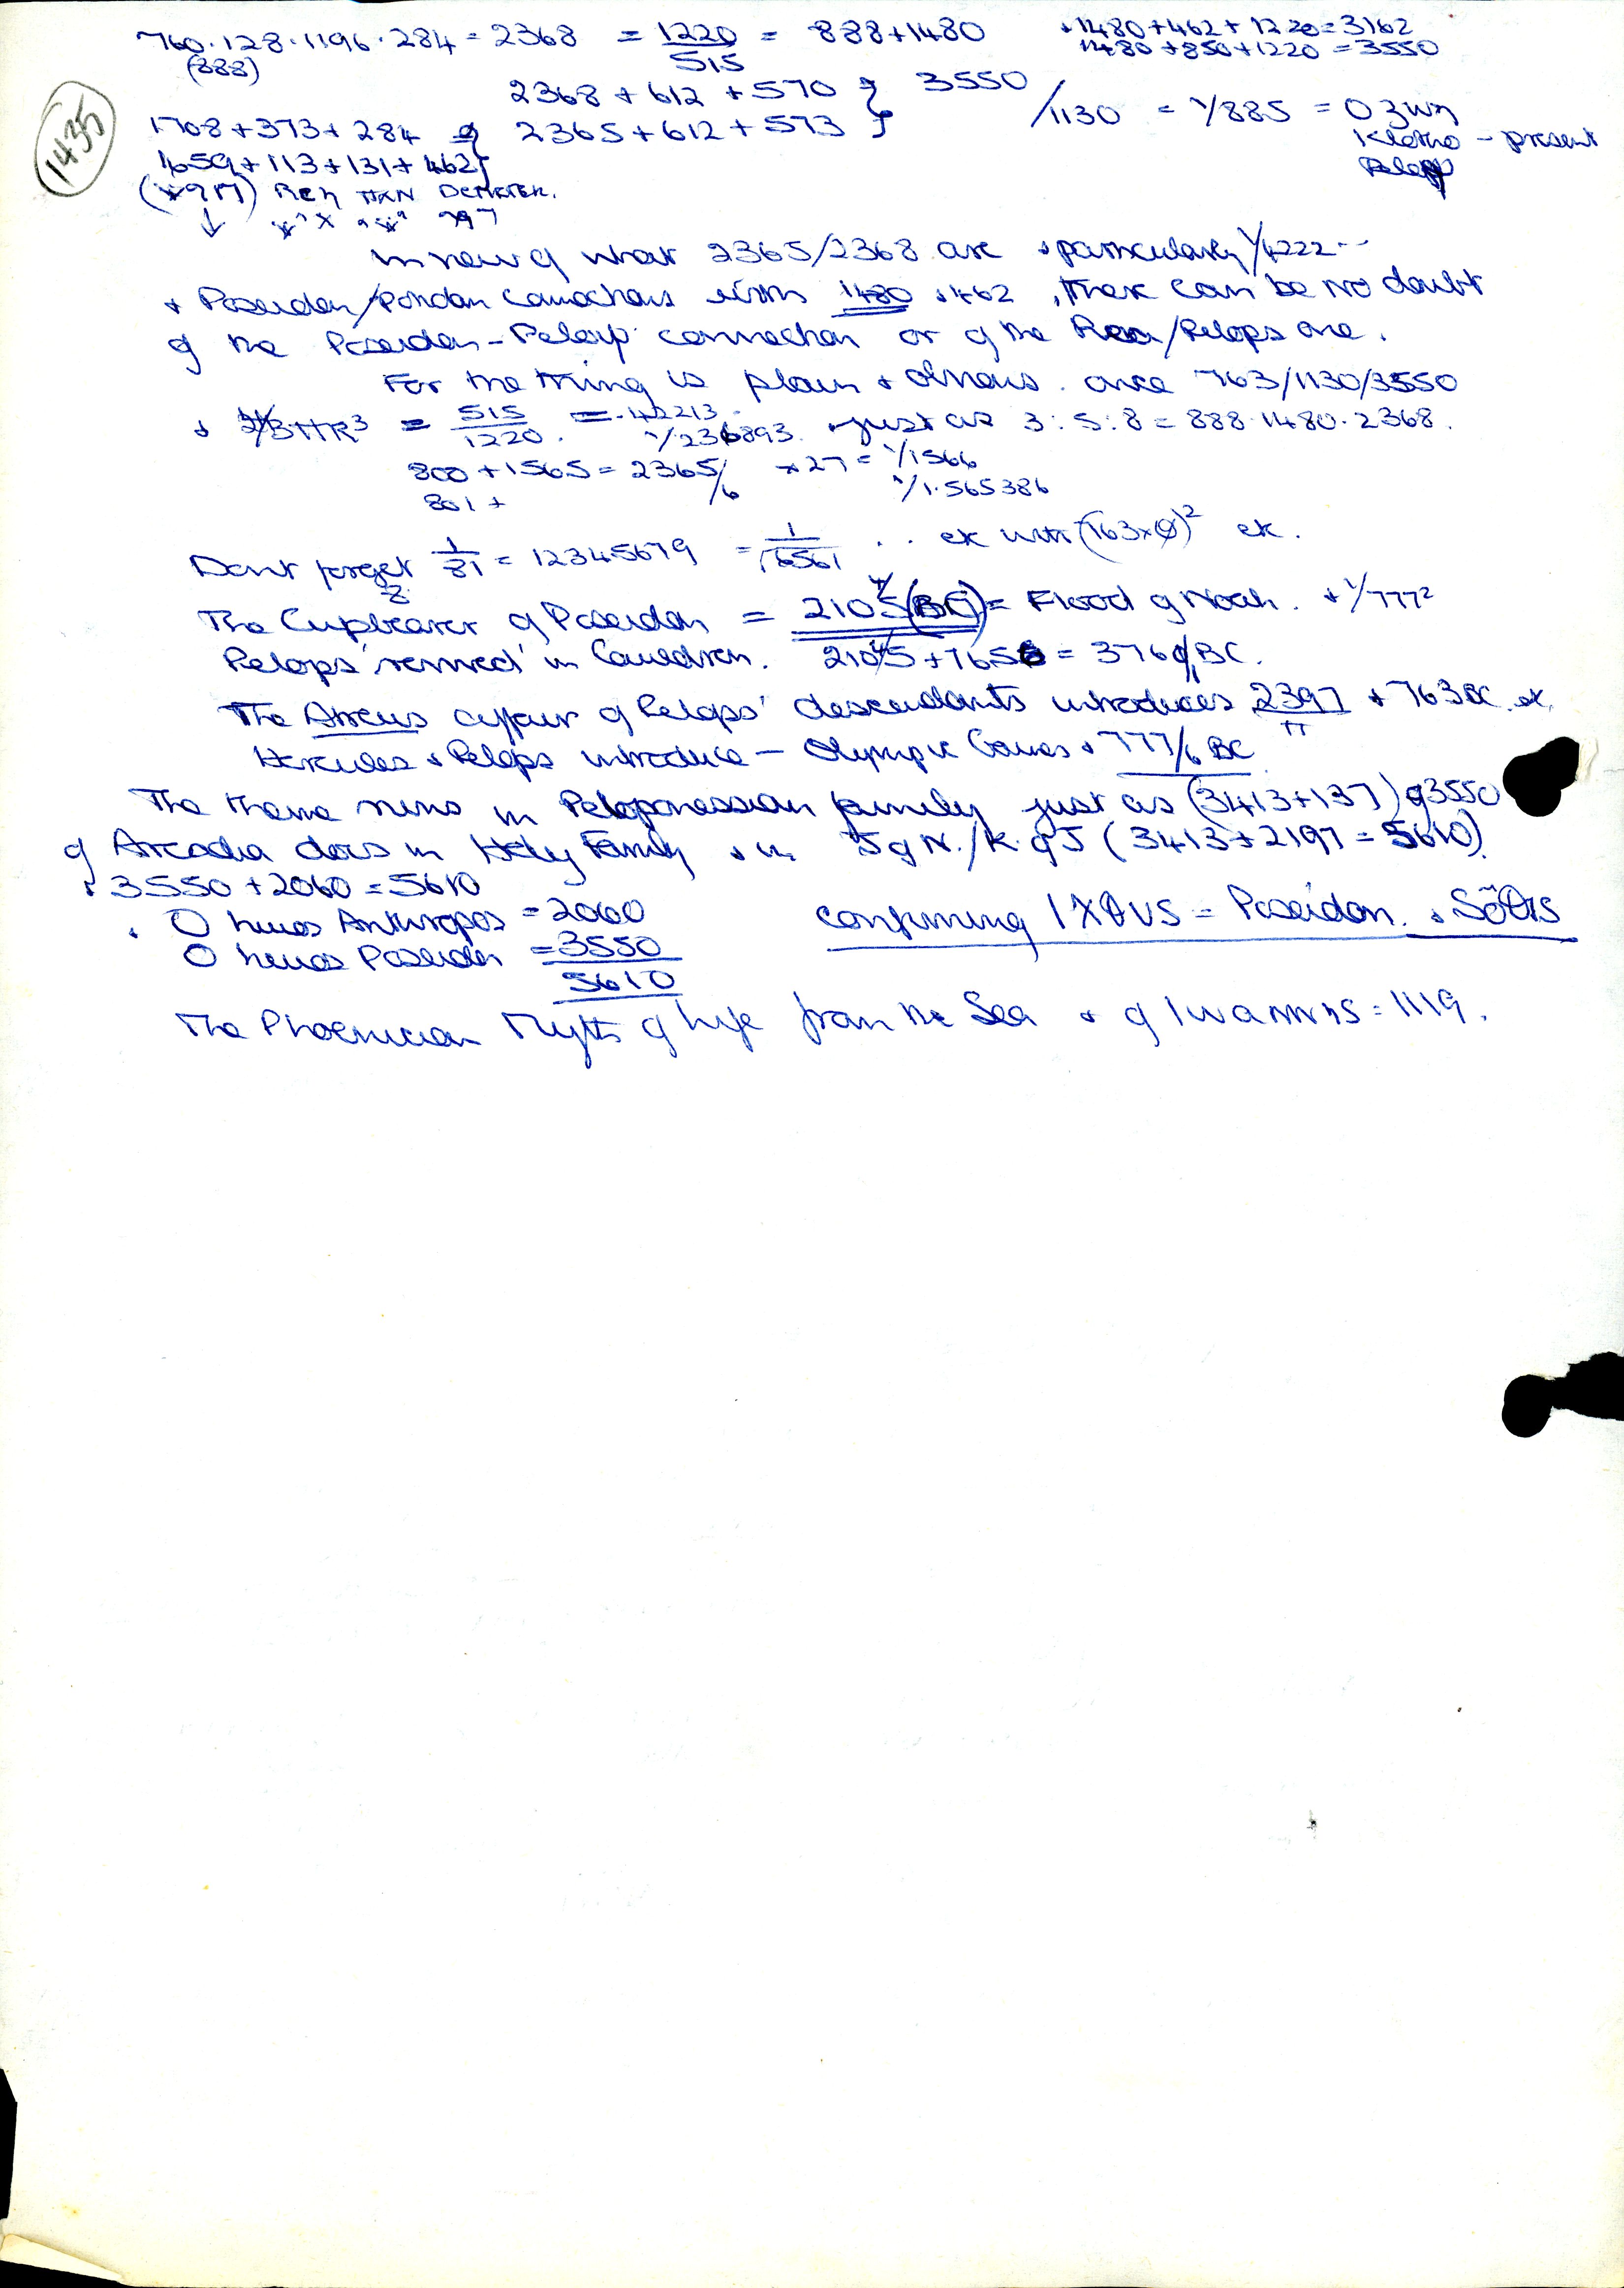 760.128.1196.284 = 2368 = 1220/515 = 888+1480
+1480+462+1220=3162
1480+850+1220=3550
(888)
1435
2368 + 612 + 570 } 3550
/1130 = 1/885 = O Zwη
1708+373+284 = 2365+612+573 }
Klotho - present
1659+113+131+462}
Pelops
(+917) Ρεη ΠΑΝ DEMETER.
In view of what 2365/2368 are + particularly 1/4222--
+ Poseidon/Poridan connections with 1480 + 462, there can be no doubt
of the Poseidon-Pelops connection or of the Rea/Pelops one.
For the thing is plain + obvious. once 763/1130/3550
+ 4/3πR³ = 515/1220 = .42213 1/236893. + just as 3:5:8 = 888.1480.2368.
800 + 1565 = 2365/6 × 27 = 1/1566
801 + 1/1.565386
Dont forget 1/81 = 12345679 = 1/6561 .. etc with (763×φ)² etc.
The Cupbearer of Poseidon = 2105/4 (BC) = Flood of Noah. + 1/777²
Pelops 'served' in Cauldron. 2105/4 + 1656 = 3760/1 BC.
The Atreus affair of Pelops' descendants introduces 2397/π + 763 BC. etc.
Hercules + Pelops introduce - Olympic Games + 777/6 BC
The theme runs in Peloponessian family just as (3413+137) of 3550
of Arcadia does in Holy Family + in J of N./K. of J (3413+2197=5610).
+ 3550+2060=5610
. O huios Anthropos = 2060
confirming ΙΧΘΥS = Poseidon. + Sõthis
O huios Poseidon = 3550
5610
The Phoenician Myth of life from the Sea + of Iwannηs = 1119.